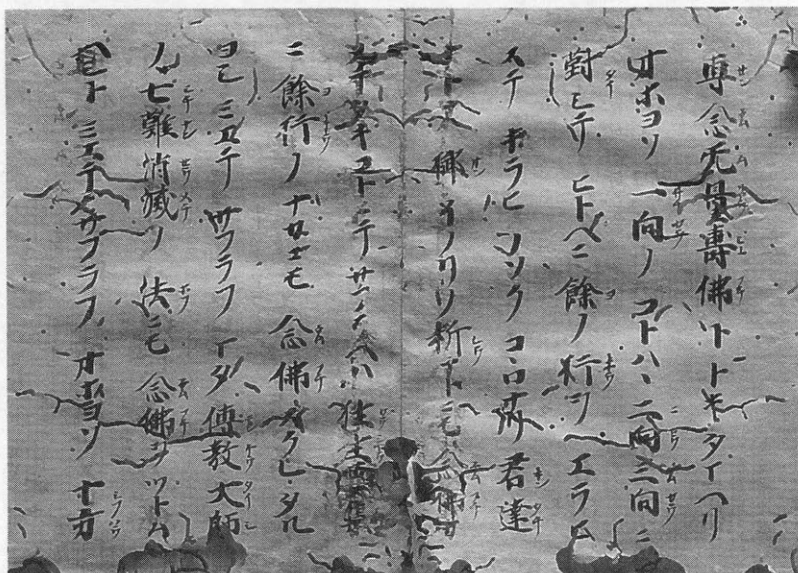 専念无量壽佛ト トキタマヘリ
オホヨソ 一向ノ コトハ、二向三向ニ
對シテ ヒトヘニ 餘ノ行ヲ エラ
ステ キラヒ ノソク コヽロ 君達
御イノリノ 料ニモ 念佛
コトニテ サ 往生要集
ニ 餘行ノ ナカニモ 念佛スクレタル
ヨシ ミエテ サフラフ マタ 傳教大師
ノ 七難消滅ノ 法ニモ 念佛ヲ ツトム
ヘシト ミエテ サフラフ オホヨソ 十方